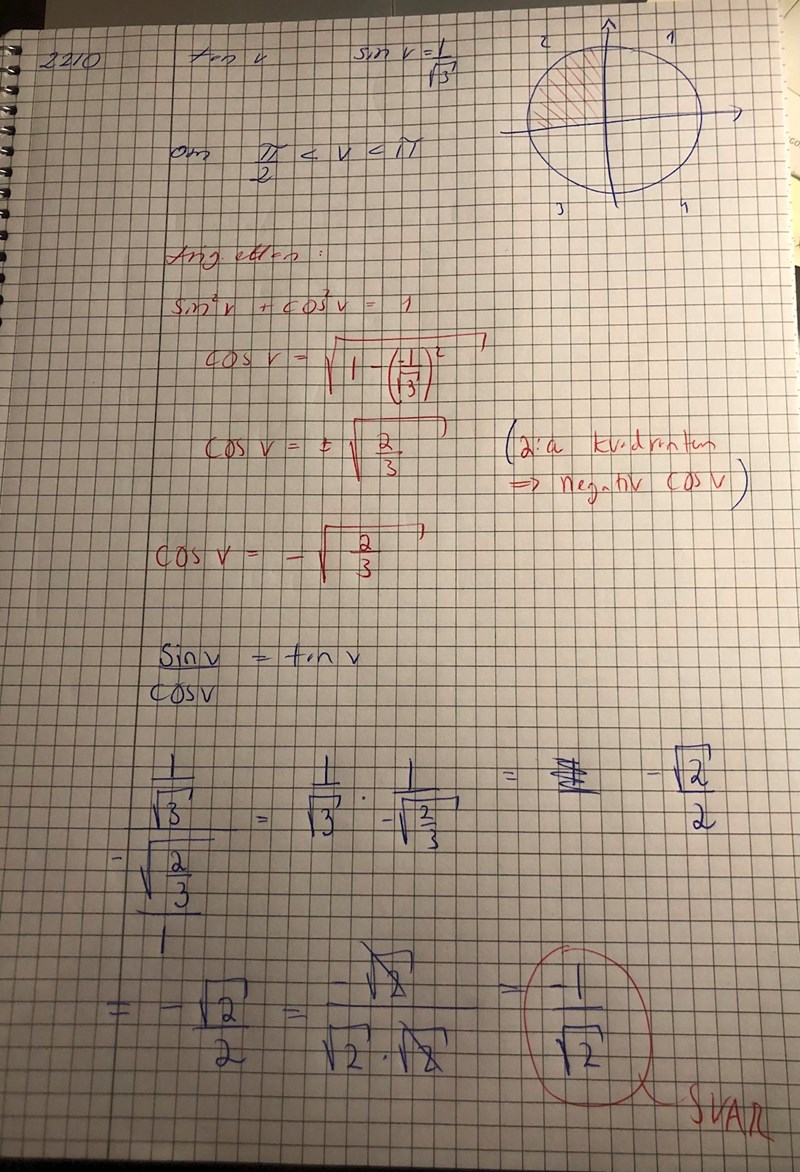 2210 tan v sin v = 1/√3
2 1
3 4
om π/2 < v < π
sin²v + cos²v = 1
cos v = √(1 - (1/√3)²)
cos v = ± √(2/3) (2:a kvadranten
=> negativ cos v)
cos v = - √(2/3)
sin v / cos v = tan v
(1/√3) / (-√(2/3) / 1) = 1/√3 · 1/(-√(2/3)) = - √2/2
= - √2/2 = -√2/(√2 · √2) = -1/√2
SVAR